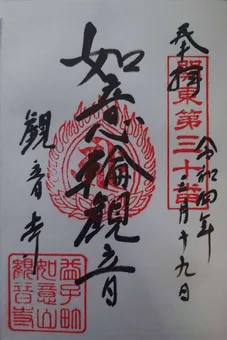 奉拝
關東第三十番
令和四年
月十九日
如意輪観音
観音寺
益子町
如意山
観音寺